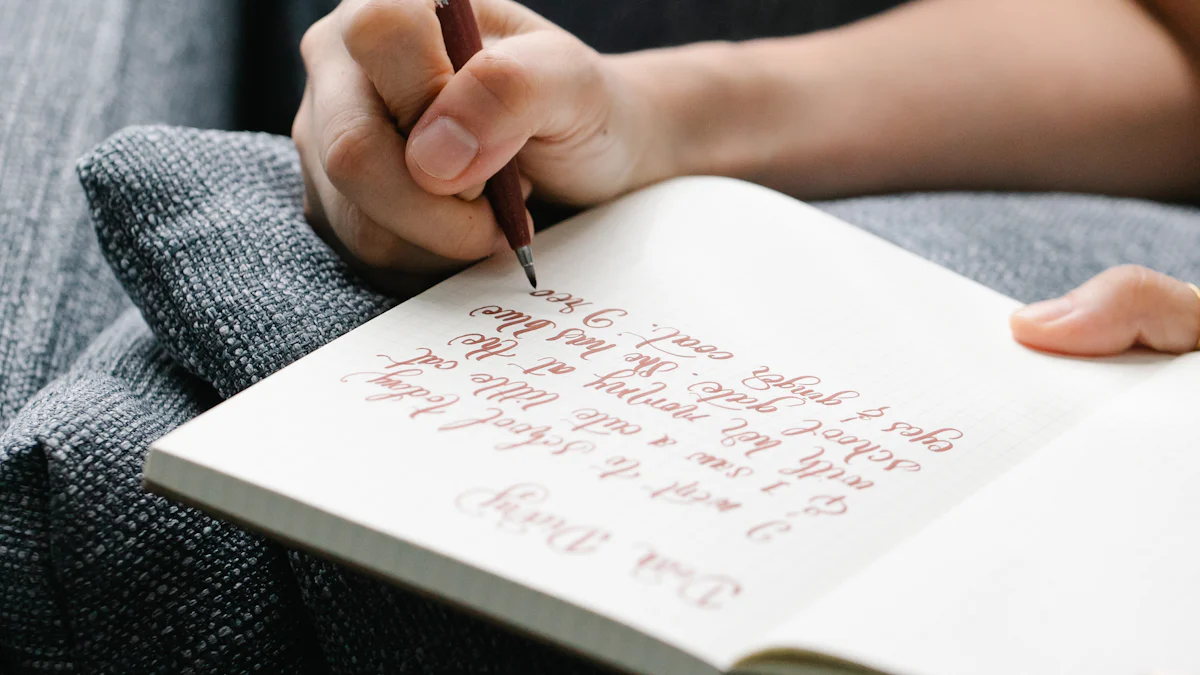 Dear Diary
I went to school today
& I saw a cute little cat
with her mommy at the
school gate. She has blue
eyes & ginger coat. I